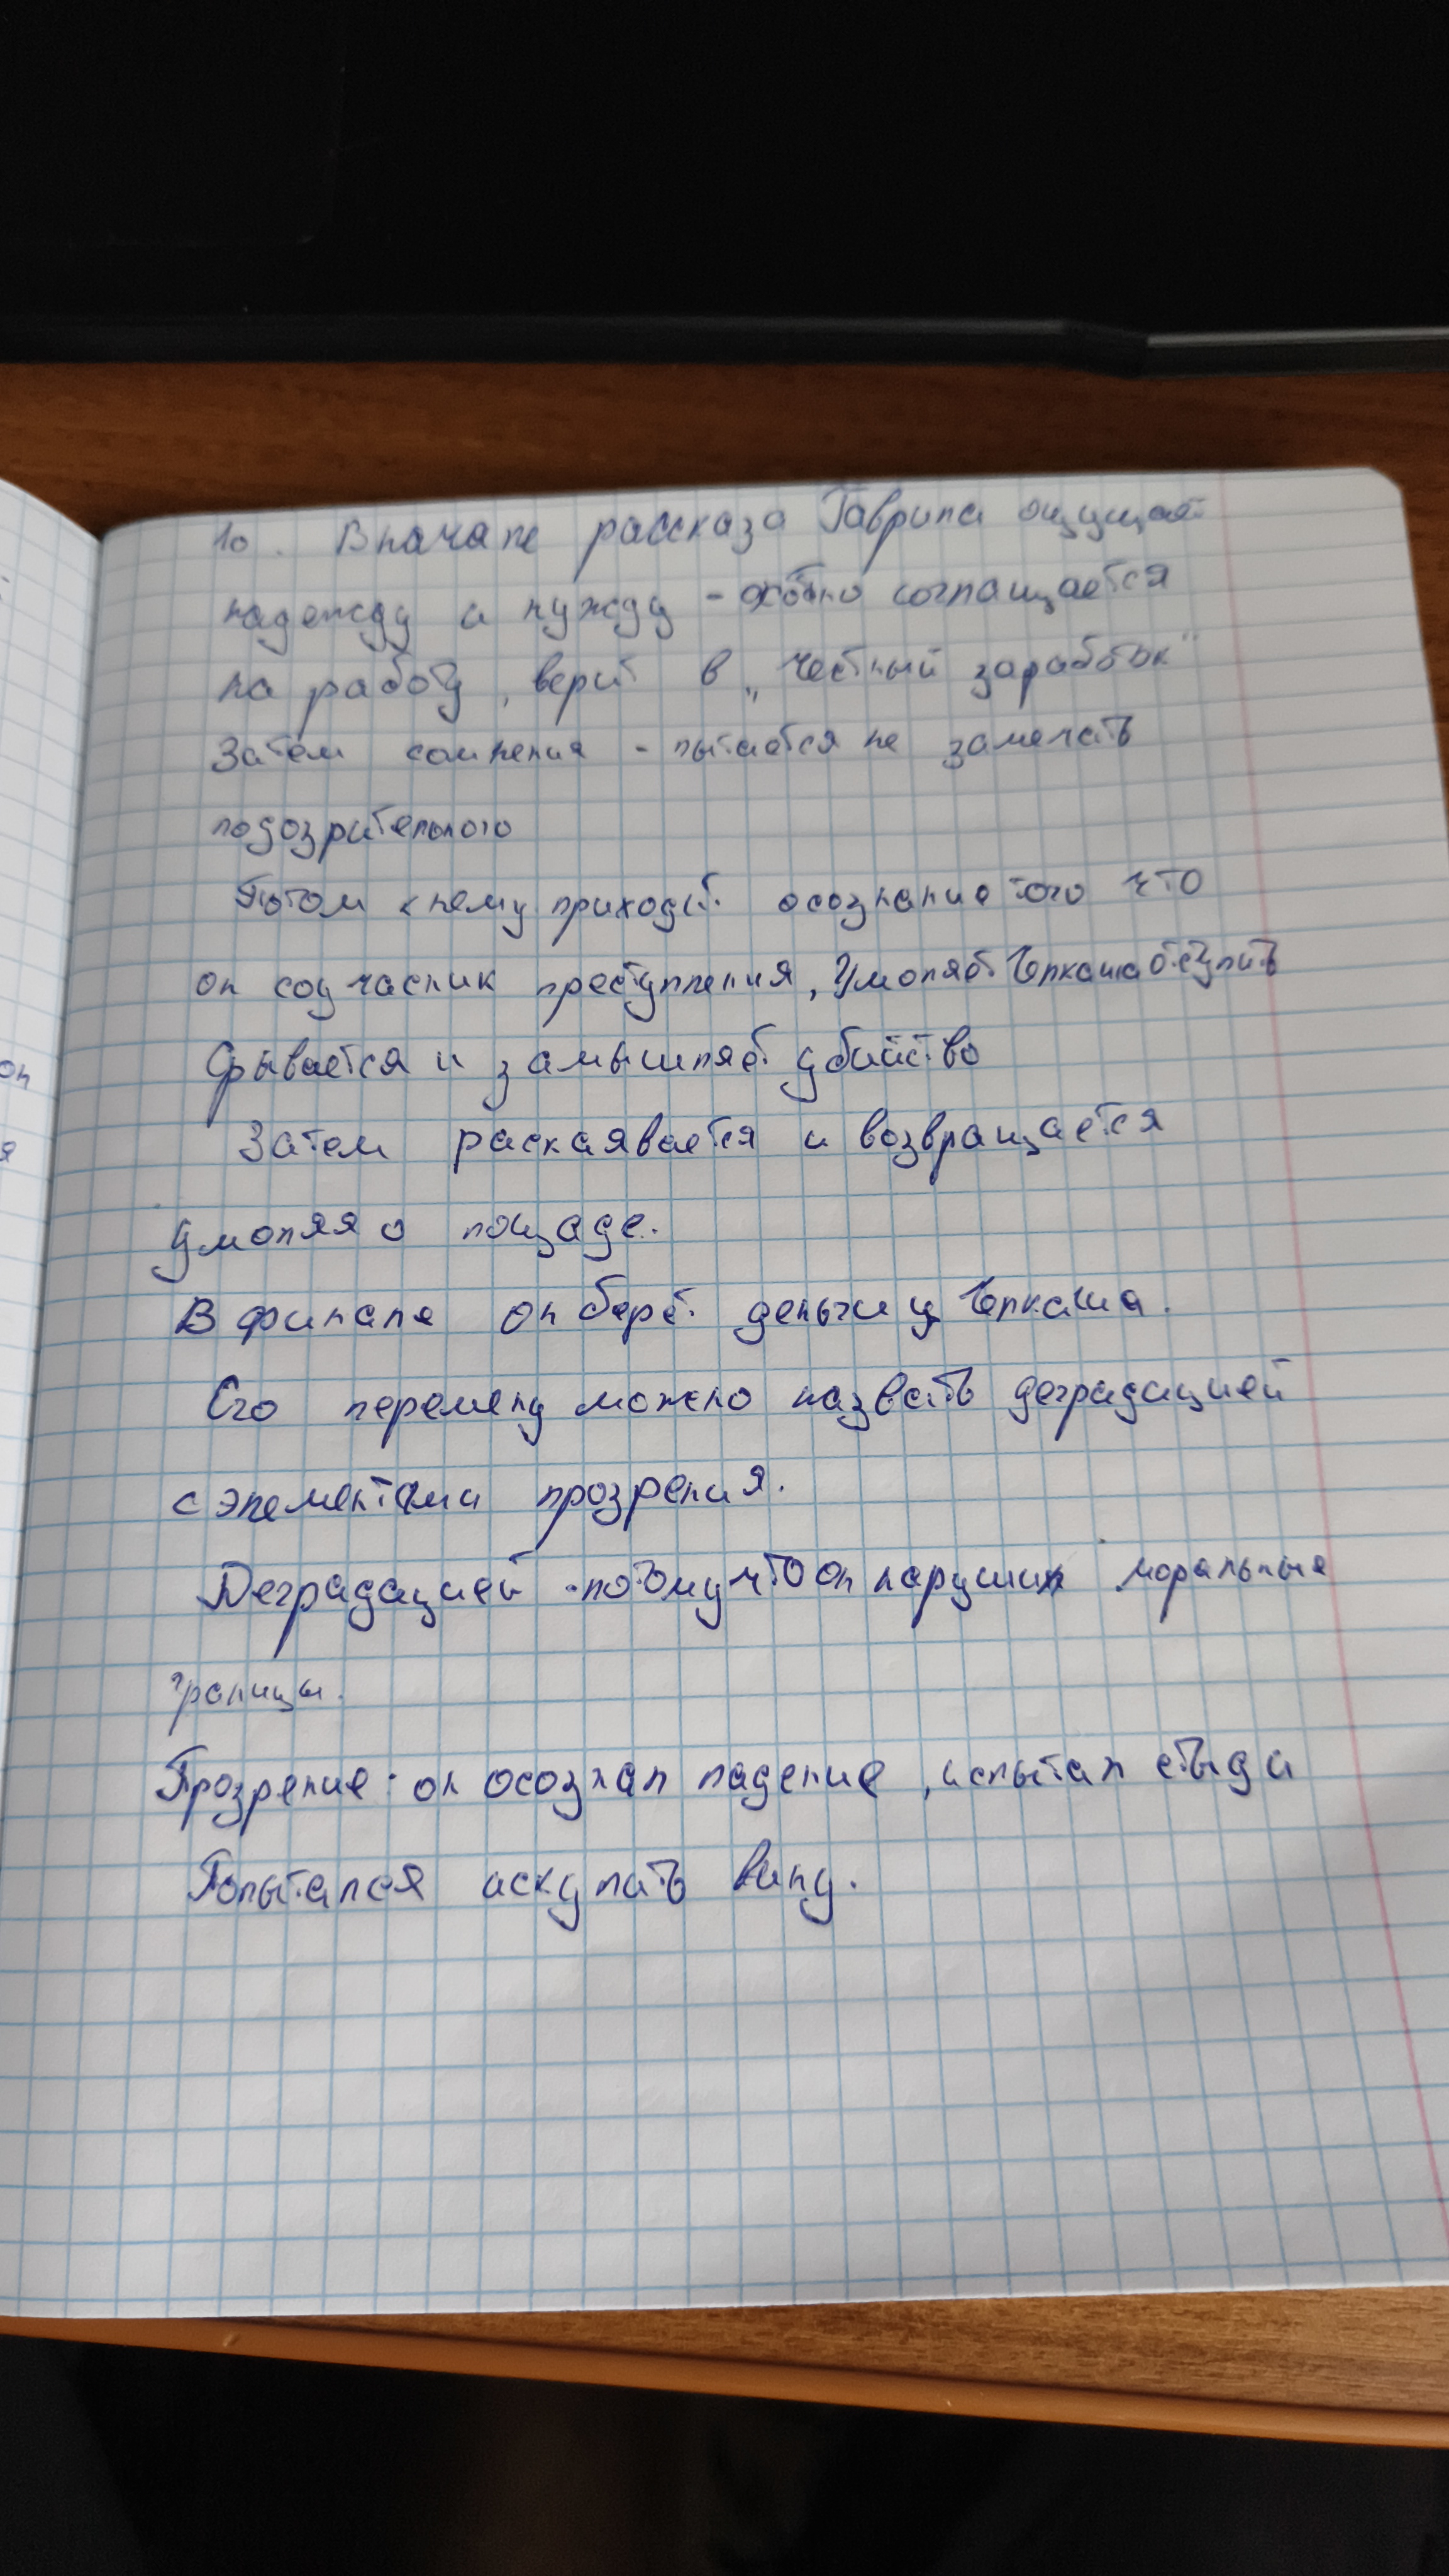 10. Вначале рассказа Гаврила ощущает
надежду и нужду - охотно соглащается
на работу, верит в „честный заработок"
Затем сомнения - пытается не замечать
подозрительного
Потом к нему приходит осознание того что
он соучасник преступления, Умоляет Челкаша отступить
Срывается и замышляет убийство
Затем раскаявается и возвращается
умоляя о пощаде.
В финале он берёт деньги у Челкаша.
Его перемену можно назвать деградацией
с элементами прозрения.
Деградацией - потому что он нарушил моральные
границы.
Прозрение: он осознал падение, испытал стыд и
Попытался искупать вину.
он
я